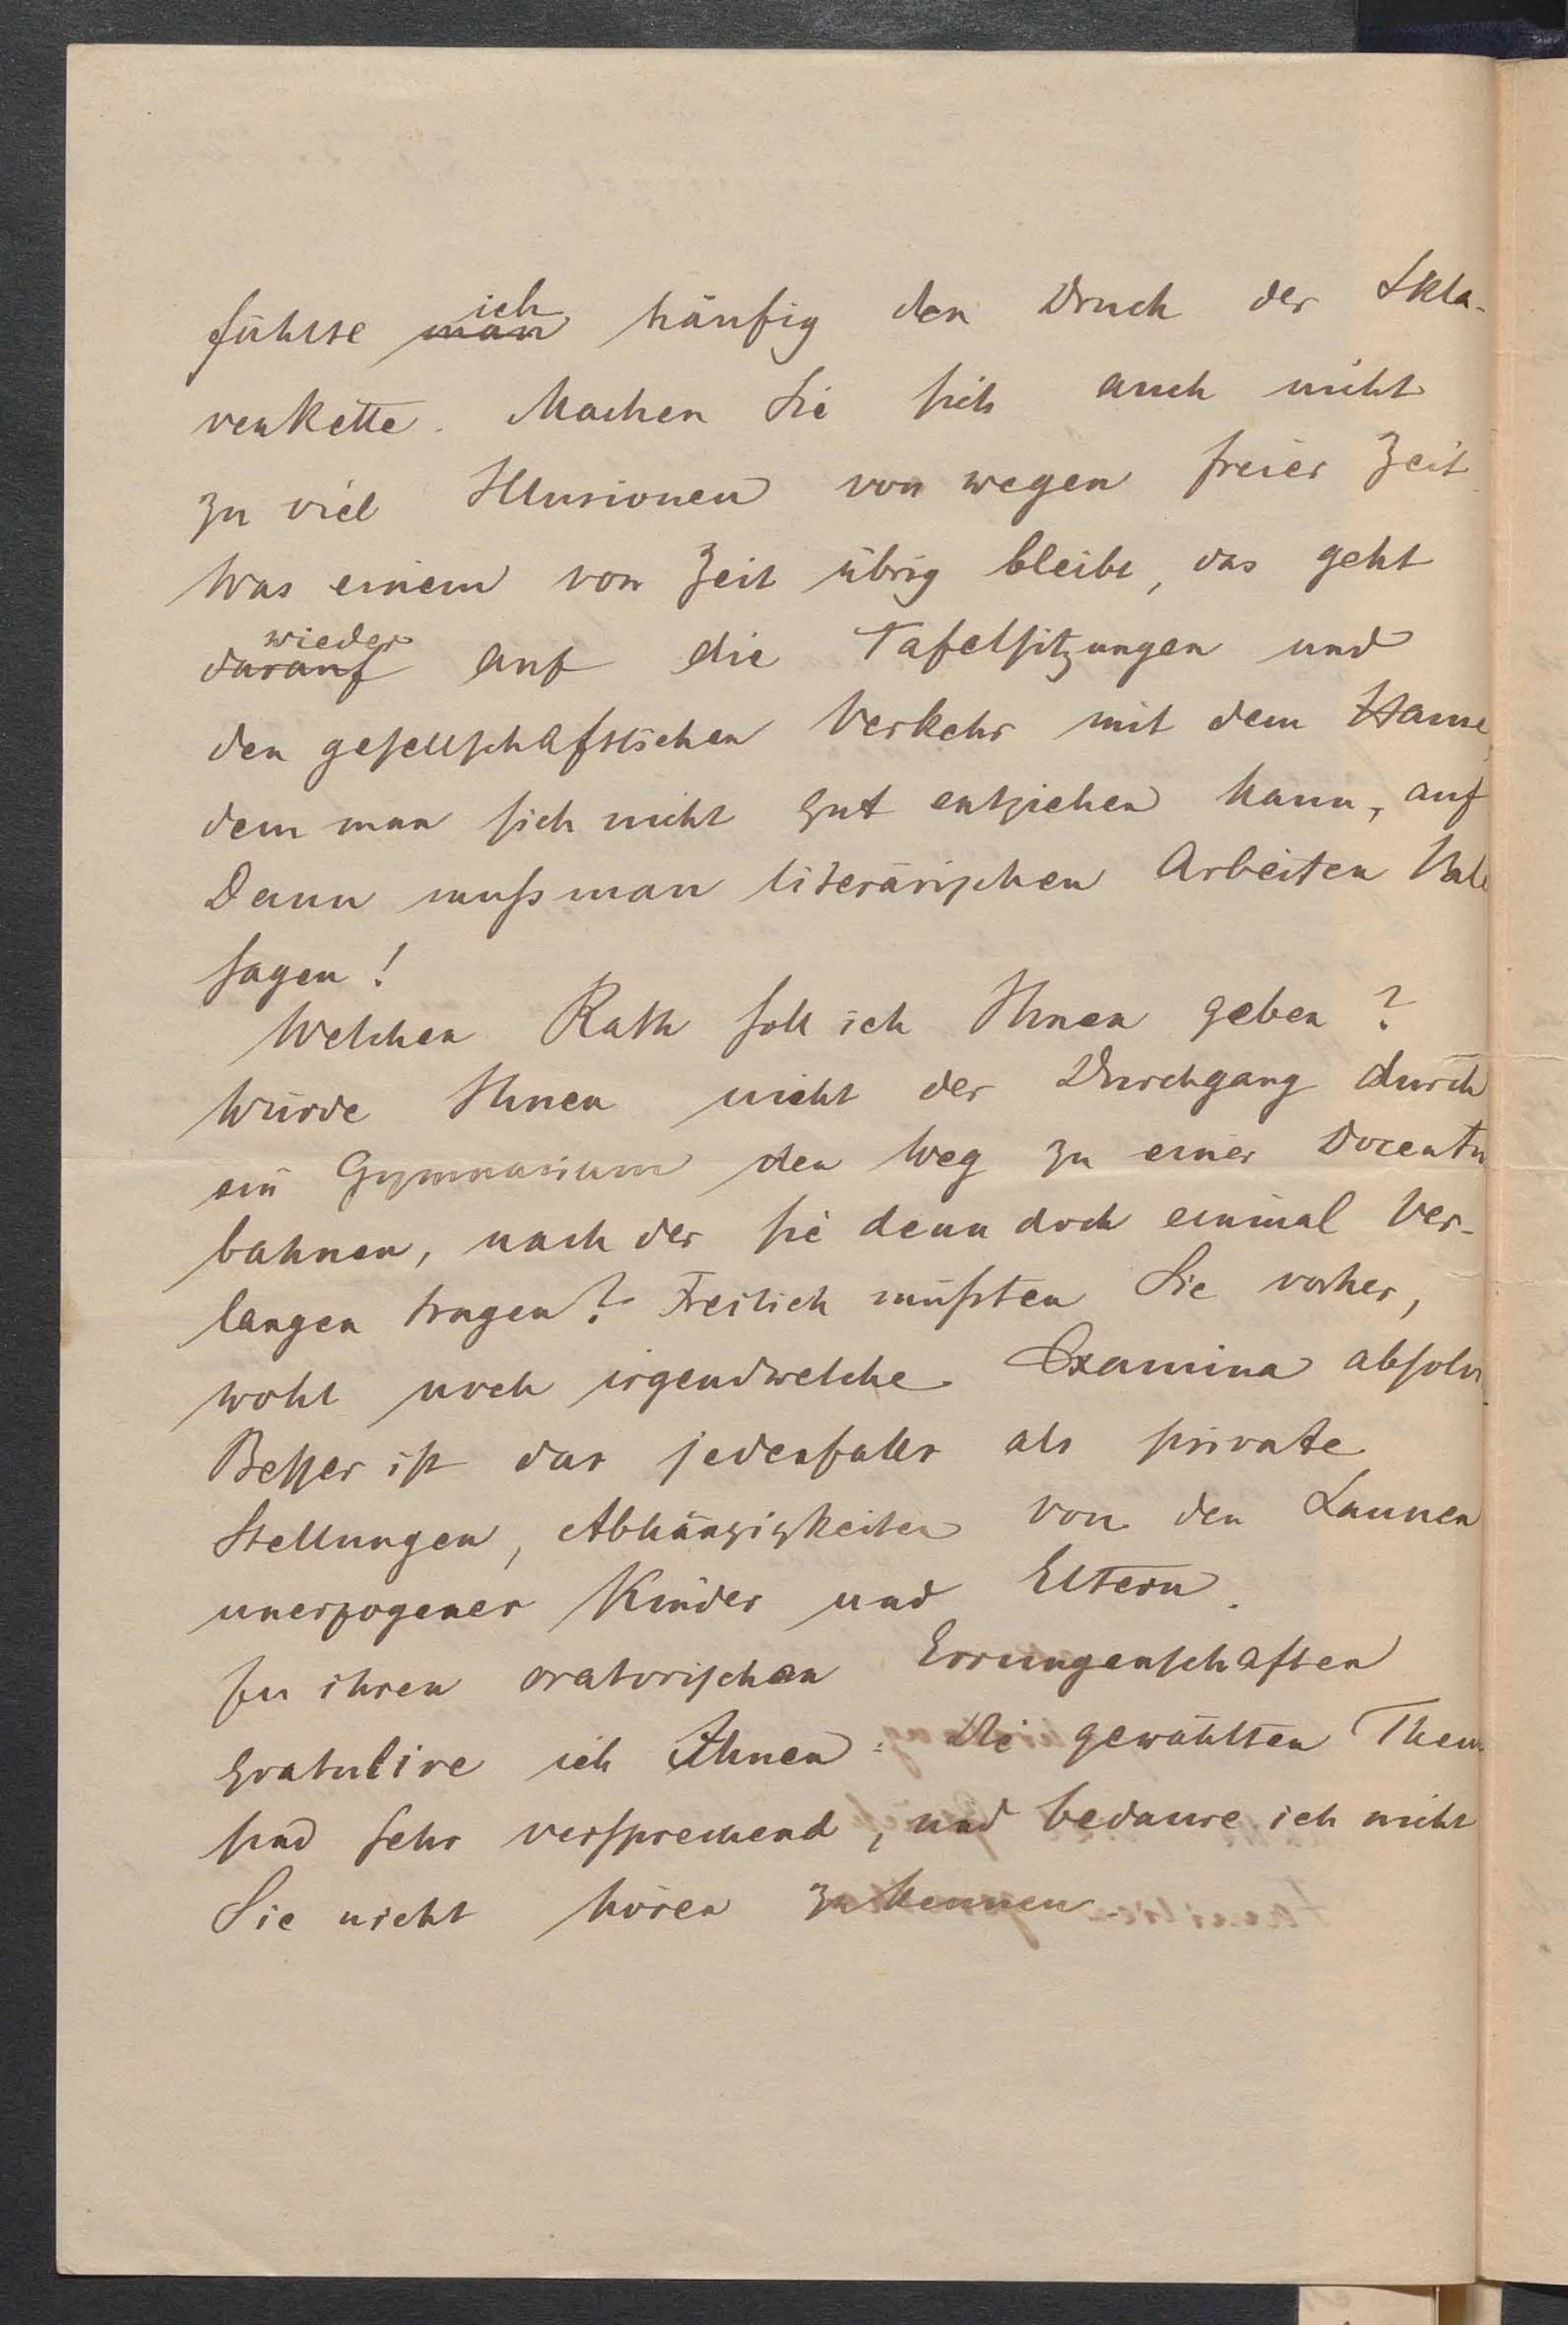 fühlte ich häufig den Druck der Skla-
venkette. Machen Sie sich auch nicht
zu viel Illusionen von wegen freier Zeit
Was einem von Zeit übrig bleibt, das geht
wieder auf die Tafelsitzungen und
den gesellschaftlichen Verkehr mit dem Hause,
dem man sich nicht gut entziehen kann, auf
Dann muß man literärischen Arbeiten Vale
sagen!
Welchen Rath soll ich Ihnen geben?
Würde Ihnen nicht der Durchgang durch
ein Gymnasium den Weg zu einer Docentu
bahnen, nach der sie denn doch einmal Ver-
langen tragen? Freilich müßten Sie vorher,
wohl noch irgendwelche Examina absolv
Besser ist das jedenfalls als private
Stellungen, Abhängigkeiten von den Launen
unerzogener Kinder und Eltern.
Zu ihren oratorischen Errungenschaften
gratulire ich Ihnen: Die gewählten Them
sind sehr versprechend, und bedaure ich nicht
Sie nicht hören zu kennen